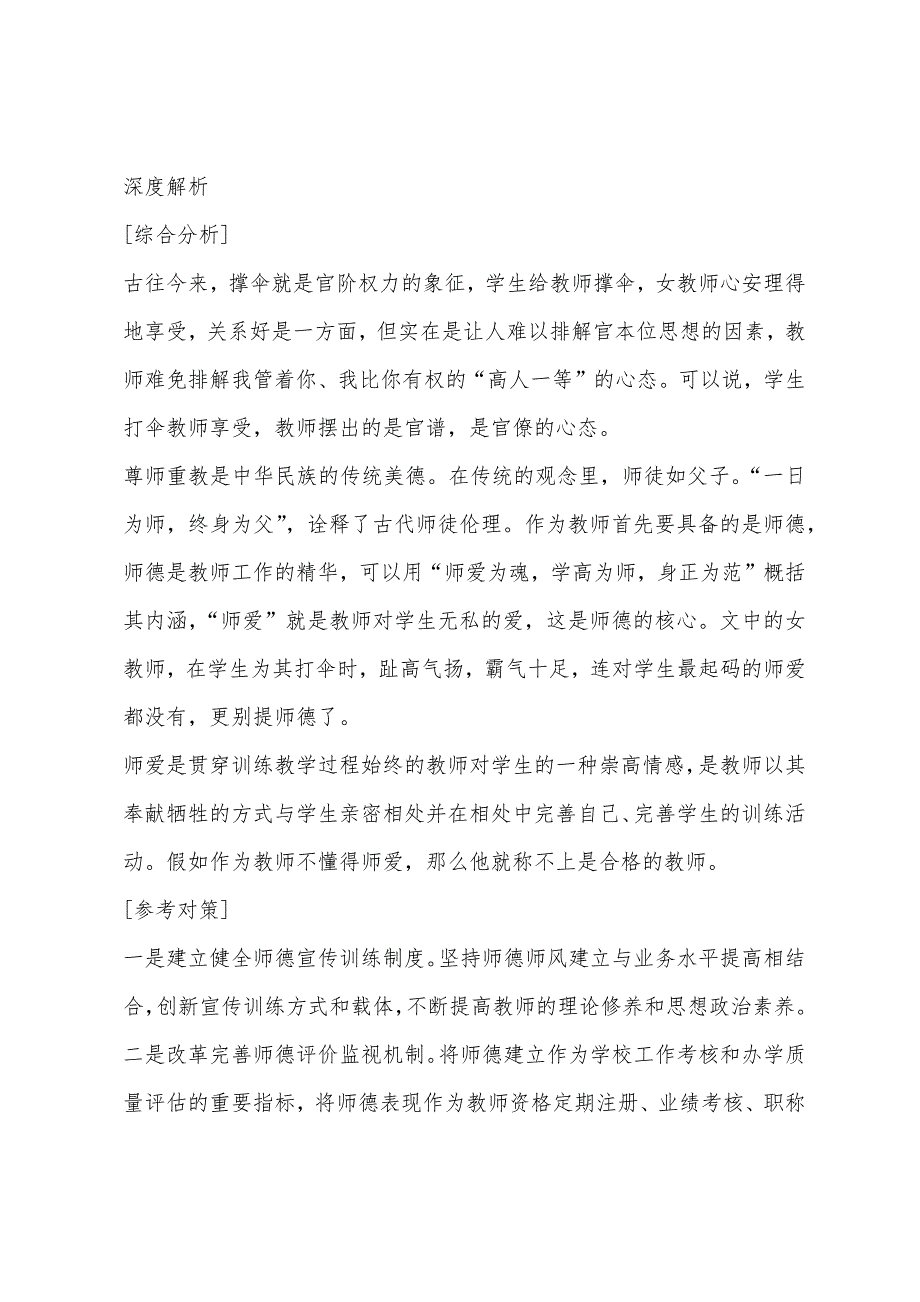 深度解析
[综合分析]
古往今来，撑伞就是官阶权力的象征，学生给教师撑伞，女教师心安理得
地享受，关系好是一方面，但实在是让人难以排解官本位思想的因素，教
师难免排解我管着你、我比你有权的“高人一等”的心态。可以说，学生
打伞教师享受，教师摆出的是官谱，是官僚的心态。
尊师重教是中华民族的传统美德。在传统的观念里，师徒如父子。“一日
为师，终身为父”，诠释了古代师徒伦理。作为教师首先要具备的是师德，
师德是教师工作的精华，可以用“师爱为魂，学高为师，身正为范”概括
其内涵，“师爱”就是教师对学生无私的爱，这是师德的核心。文中的女
教师，在学生为其打伞时，趾高气扬，霸气十足，连对学生最起码的师爱
都没有，更别提师德了。
师爱是贯穿训练教学过程始终的教师对学生的一种崇高情感，是教师以其
奉献牺牲的方式与学生亲密相处并在相处中完善自己、完善学生的训练活
动。假如作为教师不懂得师爱，那么他就称不上是合格的教师。
[参考对策]
一是建立健全师德宣传训练制度。坚持师德师风建立与业务水平提高相结
合，创新宣传训练方式和载体，不断提高教师的理论修养和思想政治素养。
二是改革完善师德评价监视机制。将师德建立作为学校工作考核和办学质
量评估的重要指标，将师德表现作为教师资格定期注册、业绩考核、职称